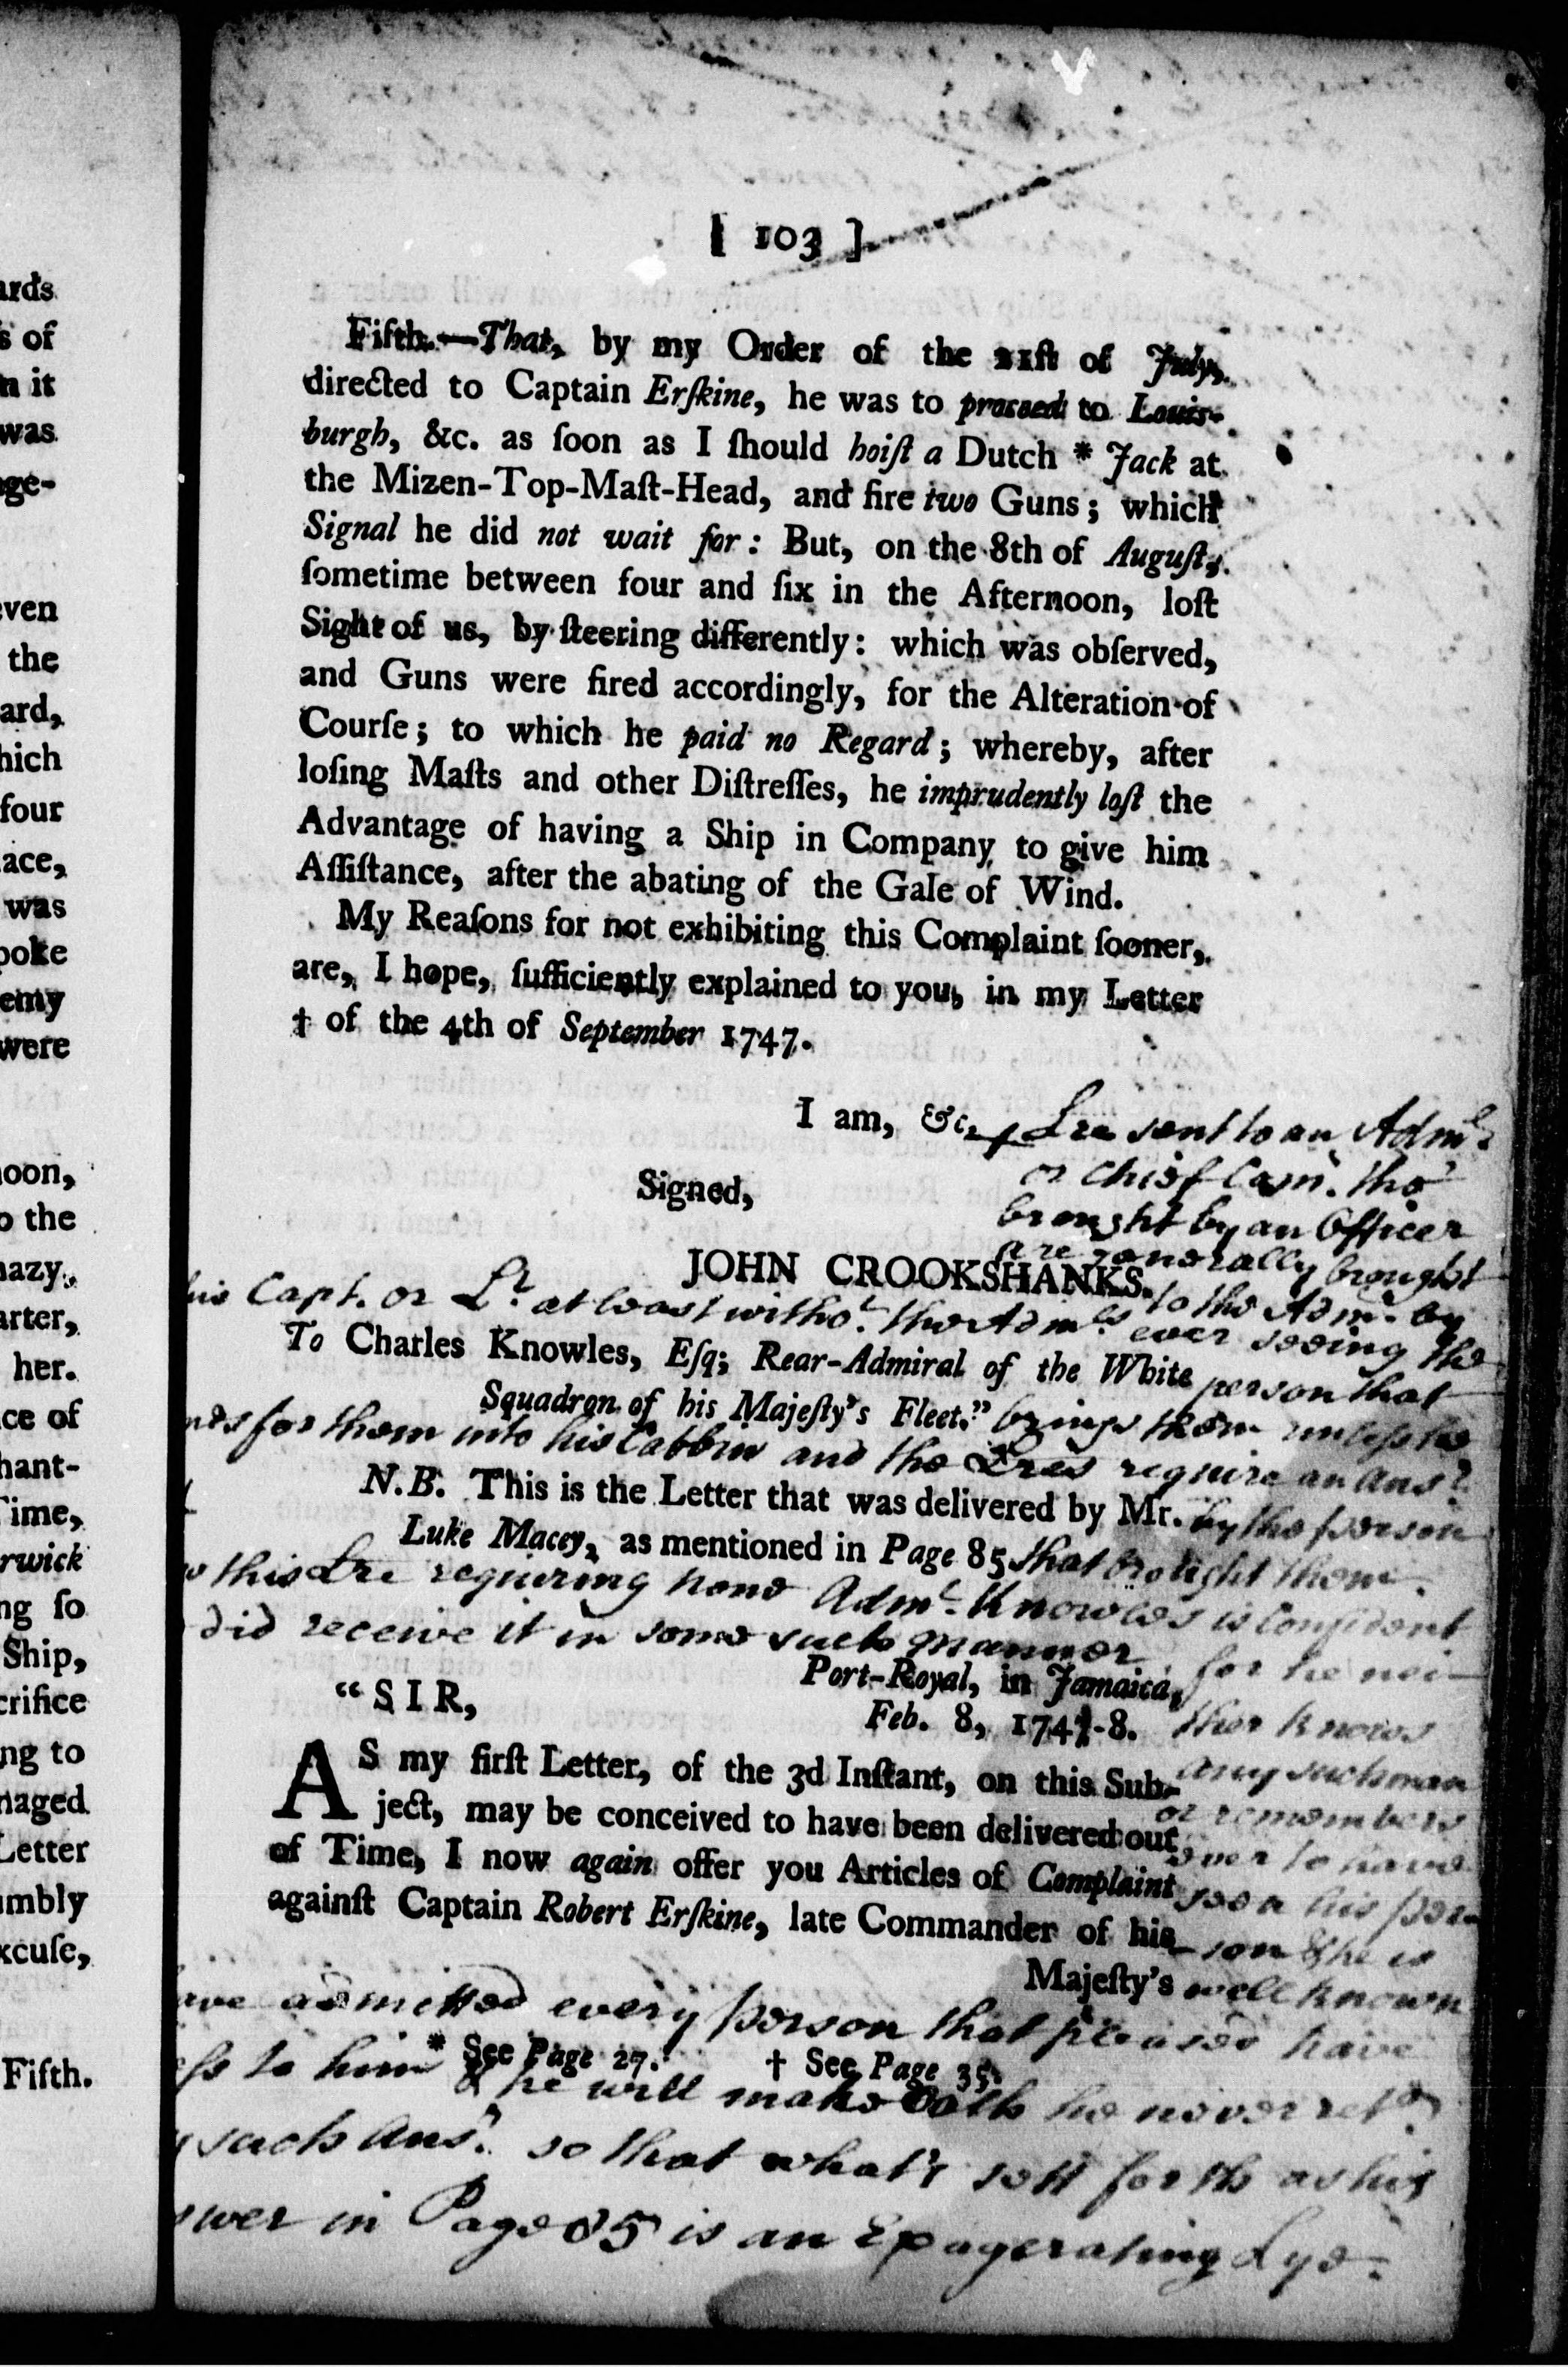 ards
s of
n it
was
ge-
ven
the
ard,
hich
four
ace,
was
poke
emy
were
noon,
o the
azy,
arter,
her.
ce of
hant-
Time,
rwick
ng ſo
Ship,
crifice
ng to
naged
Letter
umbly
xcuſe,
Fifth.
[ 103 ]
Fifth.—That, by my Order of the 21ſt of July,
directed to Captain Erſkine, he was to proceed to Louis-
burgh, &c. as ſoon as I ſhould hoiſt a Dutch * Jack at
the Mizen-Top-Maſt-Head, and fire two Guns; which
Signal he did not wait for: But, on the 8th of Auguſt,
ſometime between four and ſix in the Afternoon, loſt
Sight of us, by ſteering differently: which was obſerved,
and Guns were fired accordingly, for the Alteration of
Courſe; to which he paid no Regard; whereby, after
loſing Maſts and other Diſtreſſes, he imprudently loſt the
Advantage of having a Ship in Company to give him
Aſſiſtance, after the abating of the Gale of Wind.
My Reaſons for not exhibiting this Complaint ſooner,
are, I hope, ſufficiently explained to you, in my Letter
† of the 4th of September 1747.
I am, &c.
Signed,
JOHN CROOKSHANKS.
To Charles Knowles, Eſq; Rear-Admiral of the White
Squadron of his Majeſty's Fleet."
N.B. This is the Letter that was delivered by Mr.
Luke Macey, as mentioned in Page 85
"SIR,
Port-Royal, in Jamaica,
Feb. 8, 1747-8.
AS my firſt Letter, of the 3d Inſtant, on this Sub-
ject, may be conceived to have been delivered out
of Time, I now again offer you Articles of Complaint
againſt Captain Robert Erſkine, late Commander of his
Majeſty's
* See Page 27.
† See Page 35.
Lre sent to an Adml.
or Chief Com. tho'
brought by an Officer
are generally brought
to the Adm. by
his Capt. or Lt. at least witho.t the Admls ever seeing the
person that
brings them unless he
nds for them into his Cabbin and the Lres require an Ansr.
by the person
that brought them.
this Lre requiring none Adml. Knowles is Confident
did receive it in some such manner for he nei-
ther knows
any such man
or remembers
ever to have
seen his per-
son & he is
well known
ave admitted every person that pleased have
eſs to him & he will make Oath he never retd.
such Ansr. so that what's sett forth as his
swer in Page 85 is an Exagerating Lye.